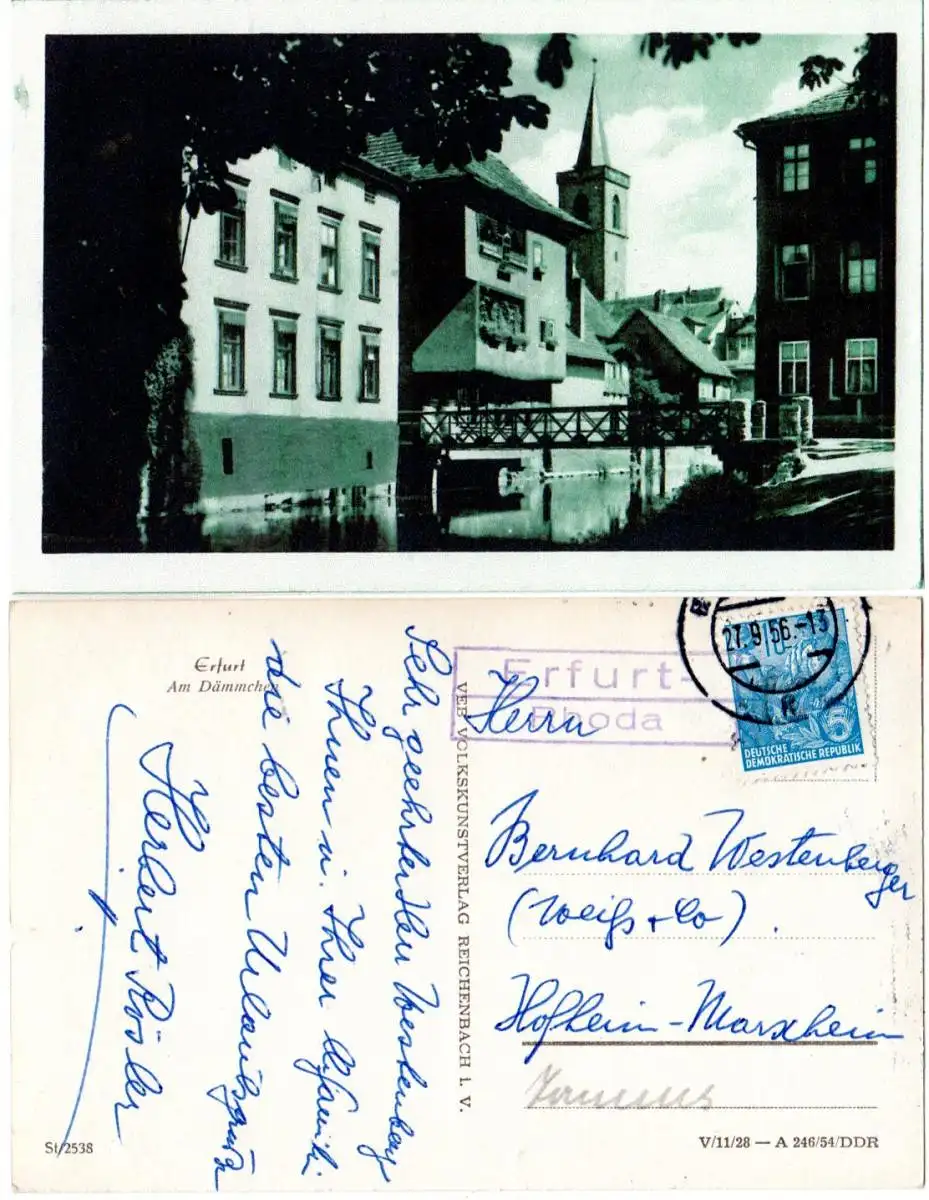 Erfurt
Am Dämmchen
Sehr geehrter Herr Westenberg
Ihnen u. Ihrer
die besten Urlaubsgrüße
Herbert Rösler
St/2538
VEB VOLKSKUNSTVERLAG REICHENBACH i. V.
Erfurt-
Rhoda
27.9.56.-13
10
5
DEUTSCHE
DEMOKRATISCHE REPUBLIK
Herrn
Bernhard Westenberger
(Weiß + Co)
Hofheim-Marxheim
Taunus
V/11/28 — A 246/54/DDR